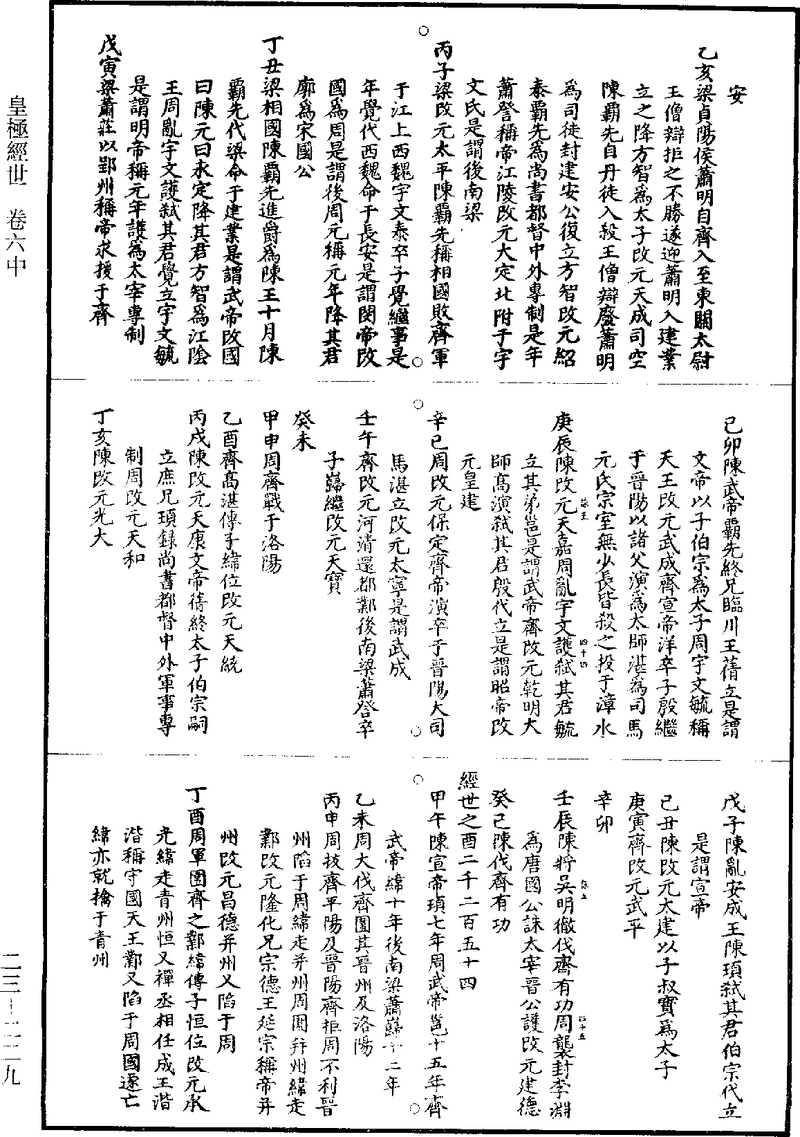 安
乙亥梁貞陽侯蕭明自齊入至東關太尉
王僧辯拒之不勝遂迎蕭明入建業
立之降方智爲太子改元天成司空
陳霸先自丹徒入殺王僧辯廢蕭明
爲司徒封建安公復立方智改元紹
泰霸先爲尚書都督中外專制是年
蕭詧稱帝江陵改元大定北附于宇
文氏是謂後南梁
丙子梁改元太平陳霸先稱相國敗齊軍
于江上西魏宇文泰卒子覺繼事是
年覺代西魏命于長安是謂閔帝改
國爲周是謂後周元稱元年降其君
廓爲宋國公
丁丑梁相國陳霸先進爵爲陳王十月陳
霸先代梁命于建業是謂武帝改國
曰陳元曰永定降其君方智爲江陰
王周亂宇文護弑其君覺立宇文毓
是謂明帝稱元年護爲太宰專制
戊寅梁蕭莊以郢州稱帝求援于齊
己卯陳武帝霸先終兄臨川王蒨立是謂
文帝以子伯宗爲太子周宇文毓稱
天王改元武成齊宣帝洋卒子殷繼
于晉陽以諸父演爲太師湛爲司馬
元氏宗室無少長皆殺之投于漳水
庚辰陳改元天嘉周亂宇文護弑其君毓
立其弟邕是謂武帝齊改元乾明大
師高演弑其君殷代立是謂昭帝改
元皇建
辛巳周改元保定齊帝演卒于晉陽大司
馬湛立改元太寧是謂武成
壬午齊改元河清還都鄴後南梁蕭詧卒
子巋繼改元天寶
癸未
甲申周齊戰于洛陽
乙酉齊高湛傳子緯位改元天統
丙戌陳改元天康文帝蒨終太子伯宗嗣
立庶兄頊錄尚書都督中外軍事專
制周改元天和
丁亥陳改元光大
戊子陳亂安成王陳頊弑其君伯宗代立
是謂宣帝
己丑陳改元大建以子叔寶爲太子
庚寅齊改元武平
辛卯
壬辰陳將吳明徹伐齊有功周襲封李淵
爲唐國公誅太宰晉公護改元建德
癸巳陳伐齊有功
經世之酉二千二百五十四
甲午陳宣帝頊七年周武帝邕十五年齊
武帝緯十年後南梁蕭巋十二年
乙未周大伐齊圍其晉州及洛陽
丙申周拔齊平陽及晉陽齊拒周不利晉
州陷于周緯走并州周圍并州緯走
鄴改元隆化兄宗德王延宗稱帝并
州改元昌德并州又陷于周
丁酉周軍圍齊之鄴緯傳子恒位改元承
光緯走青州恒又禪丞相任成王湝
湝稱守國天王鄴又陷于周國遂亡
緯亦就擒于青州
皇極經世 卷六中
二三—二二九